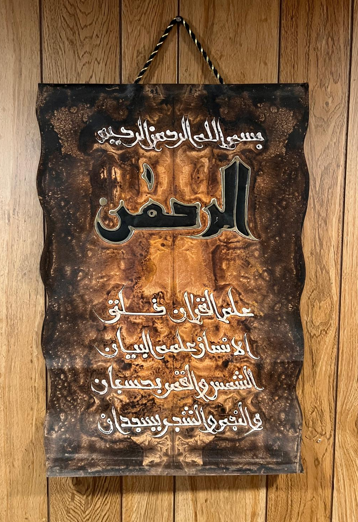 بسم الله الرحمن الرحيم
الرحمن
علم القران خلق
الانسان علمه البيان
الشمس والقمر بحسبان
والنجم والشجر يسجدان